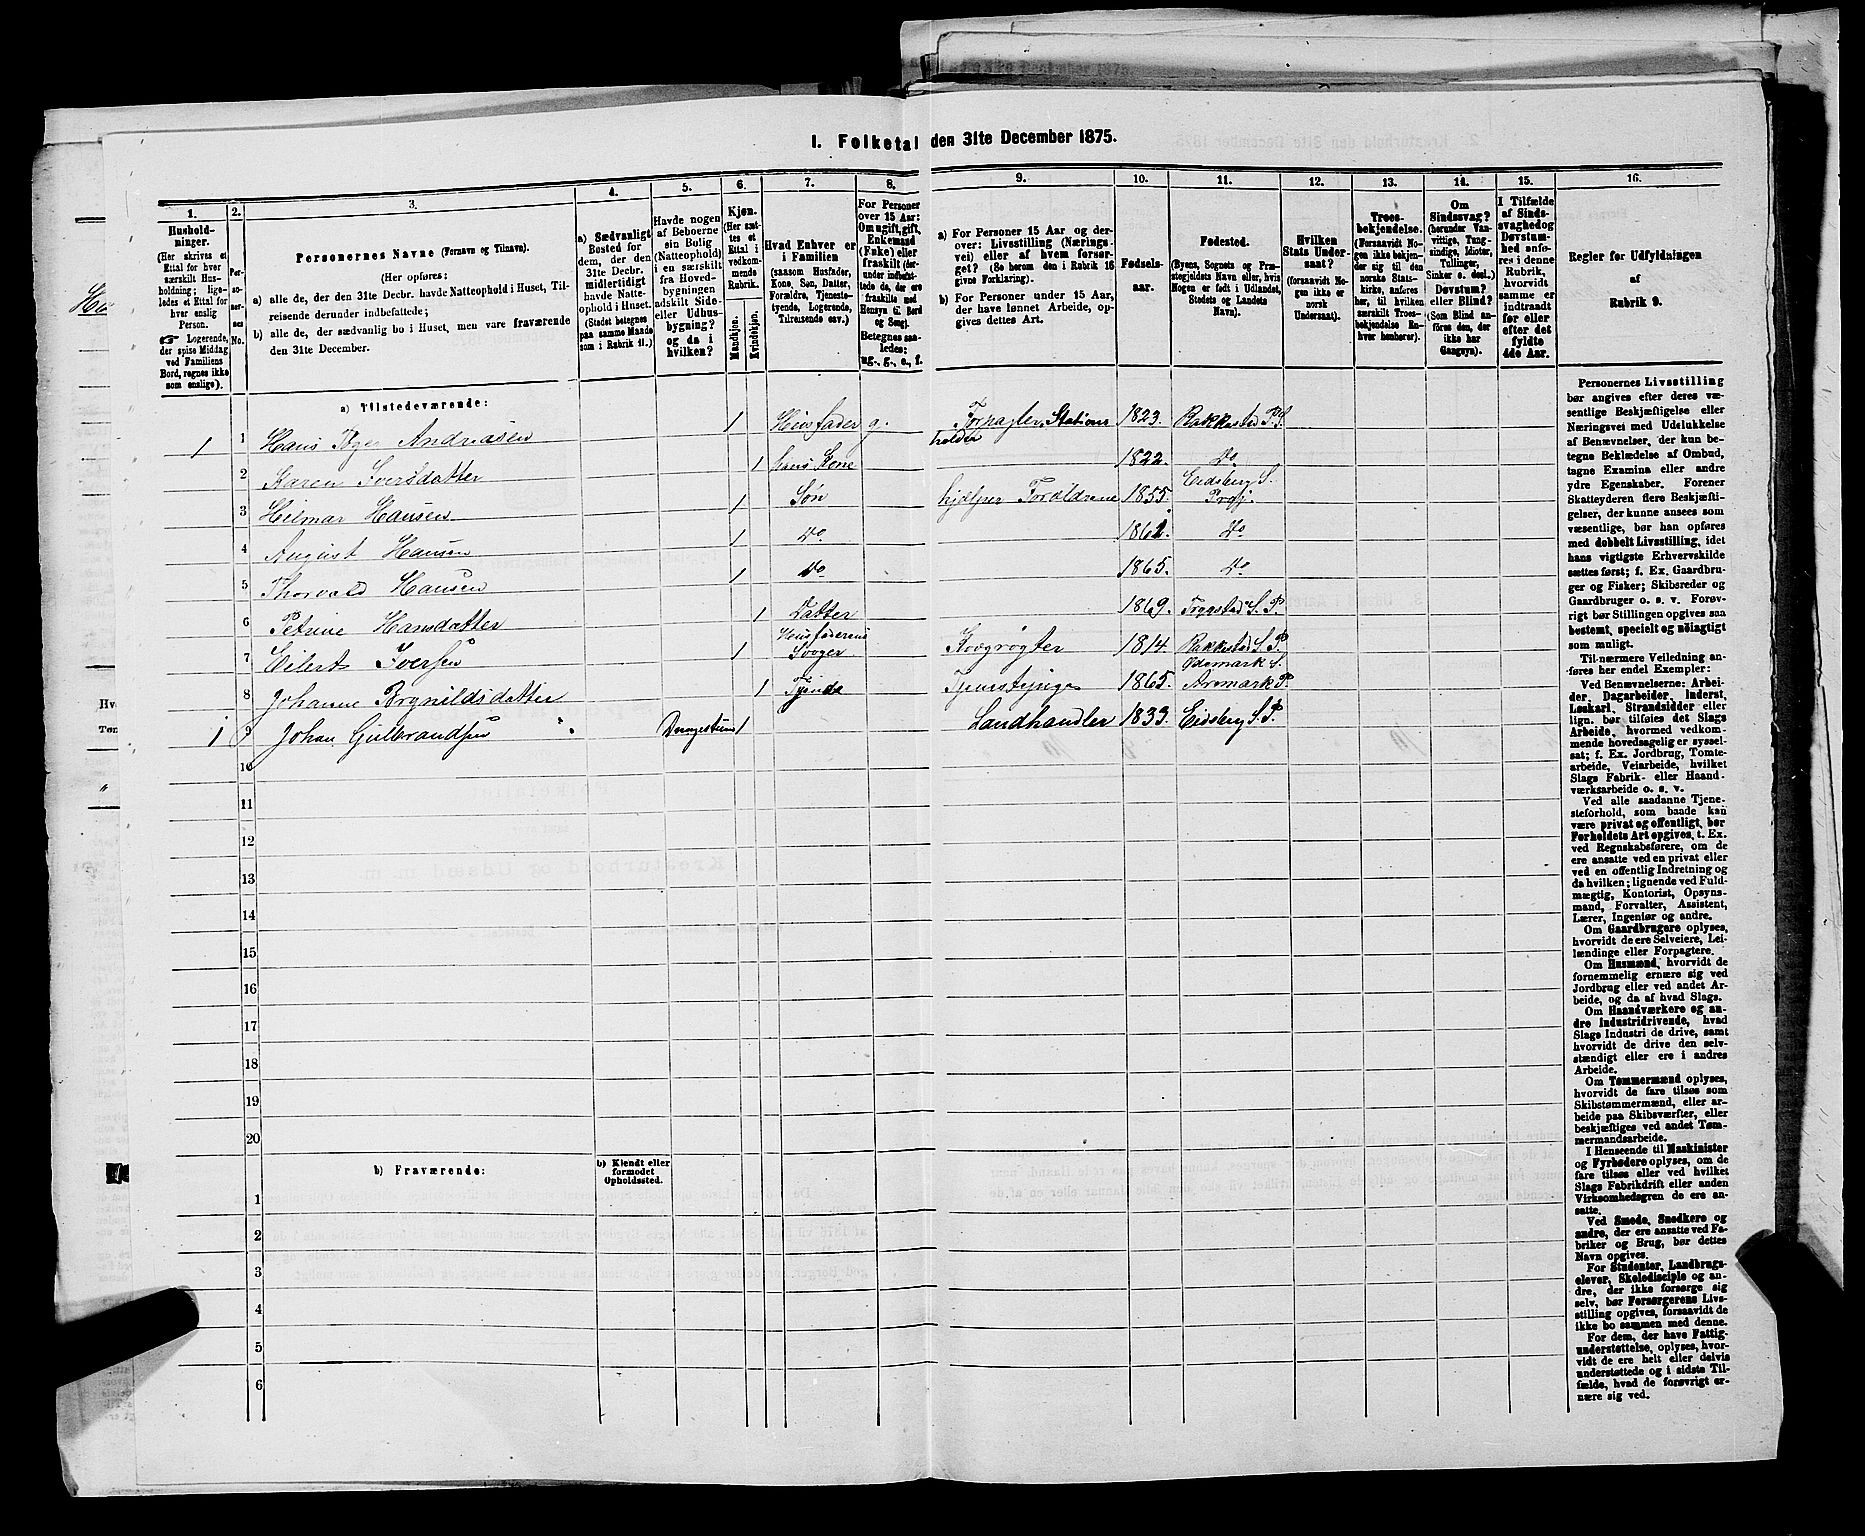 I. Folketal den 31te December 1875.
1.
2.
3.
4.
5.
6.
7.
8.
9.
10.
11.
12.
13.
14.
15.
16.
Hushold-
ninger.
(Her skrives et
Ettal for hver
særskilt Hus-
holdning; lige-
ledes et Ettal for
hver enslig
Person.
☞ Logerende,
der spise Middag
ved Familiens
Bord, regnes ikke
som enslige).
Per-
so-
ner-
nes
No.
Personernes Navne (Fornavn og Tilnavn).
(Her opføres:
a) alle de, der den 31te Decbr. havde Natteophold i Huset, Til-
reisende derunder indbefattede;
b) alle de, der sædvanlig bo i Huset, men vare fraværende
den 31te December.
a) Sædvanligt
Bosted for
dem, der den
31te Decbr.
midlertidigt
havde Natte-
ophold i Huset.
(Stedet betegnes
paa samme Maade
som i Rubrik 11.)
Havde nogen
af Beboerne
sin Bolig
(Natteophold)
i en særskilt
fra Hoved-
bygningen
adskilt Side-
eller Udhus-
bygning?
og da i
hvilken?
Kjøn.
(Her sæt-
tes et
Ettal i
vedkom-
mende
Rubrik.
Mandkjøn.
Kvindekjøn.
Hvad Enhver er
i Familien
(saasom Husfader,
Kone, Søn, Datter,
Forældre, Tjeneste-
tyende, Logerende,
Tilreisende osv.)
For Personer
over 15 Aar:
Om ugift, gift,
Enkemand
(Enke) eller
fraskilt (der-
under indbefat-
tede de, der ere
fraskilte med
Hensyn til Bord
og Seng).
Betegnes saa-
ledes:
ug., g., e., f.
a) For Personer 15 Aar og der-
over: Livsstilling (Nærings-
vei) eller af hvem forsør-
get? (Se herom den i Rubrik 16
givne Forklaring).
b) For Personer under 15 Aar,
der have lønnet Arbeide, op-
gives dettes Art.
Fødsels-
aar.
Fødested.
(Byens, Sognets og Præ-
stegjeldets Navn eller, hvis
Nogen er født i Udlandet,
Stedets og Landets
Navn).
Hvilken
Stats Under-
saat?
(forsaavidt No-
gen ikke er
norsk
Undersaat).
Troes-
bekjendelse.
(Forsaavidt No-
gen ikke bekjen-
der sig til den
norske Stats-
kirke, anføres
her, til hvilken
særskilt Troes-
bekjendelse En-
hver henhører).
Om
Sindssvag?
(herunder Van-
vittige, Tung-
sindige, Idioter,
Tullinger,
Sinker o. desl.)
Døvstum?
eller Blind?
(Som Blind an-
føres den, der
ikke har
Gangsyn).
I Tilfælde
af Sinds-
svaghed og
Døvstum-
hed anfø-
res i denne
Rubrik,
hvorvidt
samme er
indtraadt
før eller
efter det
fyldte
4de Aar.
Regler for Udfyldningen
af
Rubrik 9.
a) Tilstedeværende:
1 1 Hans Andreasen 1 Husfader g. Forpagter, Stations
holder 1823. Rakkestad P. S.
2 Karen Iversdatter 1 hans Kone 1822. Do
3 Hilmar Hansen 1 Søn hjælper Forældrene 1855. Eidsberg S.
Prgj.
4 August Hansen 1 Do Do
5 Thorvald Hansen 1 Do 1865. Do
6 Petrine Hansdatter 1 Datter 1869. Trygstad S. P.
7 Eilert Iversen 1 Husfaderens
Svoger 1814. Rakkestad S. P.
8 Johanne 1 1865. S.
Aremark P.
1 9 Johan Gulbrandsen 1 Landhandler 1833. Eidsberg S. P.
10
11
12
13
14
15
16
17
18
19
20
b) Fraværende:
b) Kjendt eller
formodet
Opholdssted.
1
2
3
4
5
6
Personernes Livsstilling
bør angives efter deres væ-
sentlige Beskjæftigelse eller
Næringsvei med Udelukkelse
af Benævnelser, der kun be-
tegne Beklædelse af Ombud,
tagne Examina eller andre
ydre Egenskaber. Forener
Skatteyderen flere Beskjæfti-
gelser, der kunne ansees som
væsentlige, bør han opføres
med dobbelt Livsstilling, idet
hans vigtigste Erhvervskilde
sættes først; f. Ex. Gaardbru-
ger og Fisker; Skibsreder og
Gaardbruger o. s. v. Forøv-
rigt bør Stillingen opgives saa
bestemt, specielt og nøiagtigt
som muligt.
Til nærmere Veiledning an-
føres her endel Exempler:
Ved Benævnelserne: Arbei-
der, Dagarbeider, Inderst,
Løskarl, Strandsidder eller
lign. bør tilføies det Slags
Arbeide, hvormed vedkom-
mende hovedsagelig er syssel-
sat; f. Ex. Jordbrug, Tomte-
arbeide, Veiarbeide, hvilket
Slags Fabrik- eller Haand-
værksarbeide o. s. v.
Ved alle saadanne Tjene-
steforhold, som baade kan
være privat og offentligt, bør
Forholdets Art opgives, t. Ex.
ved Regnskabsførere, om de
ere ansatte ved en privat eller
ved en offentlig Indretning og
da hvilken; lignende ved Fuld-
mægtig, Kontorist, Opsyns-
mand, Forvalter, Assistent,
Lærer, Ingeniør og andre.
Om Gaardbrugere oplyses,
hvorvidt de ere Selveiere, Lei-
lændinge eller Forpagtere.
Om Husmænd, hvorvidt de
fornemmelig ernære sig ved
Jordbrug eller ved andet Ar-
beide, og da af hvad Slags.
Om Haandværkere og an-
dre industridrivende, hvad
Slags Industri de drive, samt
hvorvidt de drive den selv-
stændigt eller ere i andres
Arbeide.
Om Tømmermænd oplyses,
hvorvidt de fare tilsøs som
Skibstømmermænd, eller ar-
beide paa Skibsværfter, eller
beskjæftiges ved andet Tøm-
mermandsarbeide.
I Henseende til Maskinister
og Fyrbødere oplyses, om de
fare tilsøs eller ved hvilket
Slags Fabrikdrift eller anden
Virksomhedsgren de ere an-
satte.
Ved Smede, Snedkere og
andre, der ere ansatte ved Fa-
briker og Brug, bør dettes
Navn opgives.
For Studenter, Landbrugs-
elever, Skoledisciple og an-
dre, der ikke forsørge sig
selv, bør Forsørgerens Livs-
stilling opgives, forsaavidt de
ikke bo sammen med denne.
For dem, der have Fattig-
understøttelse, oplyses, hvor-
vidt de ere helt eller delvis
understøttede og i sidste Til-
fælde, hvad de forøvrigt er-
nære sig ved.